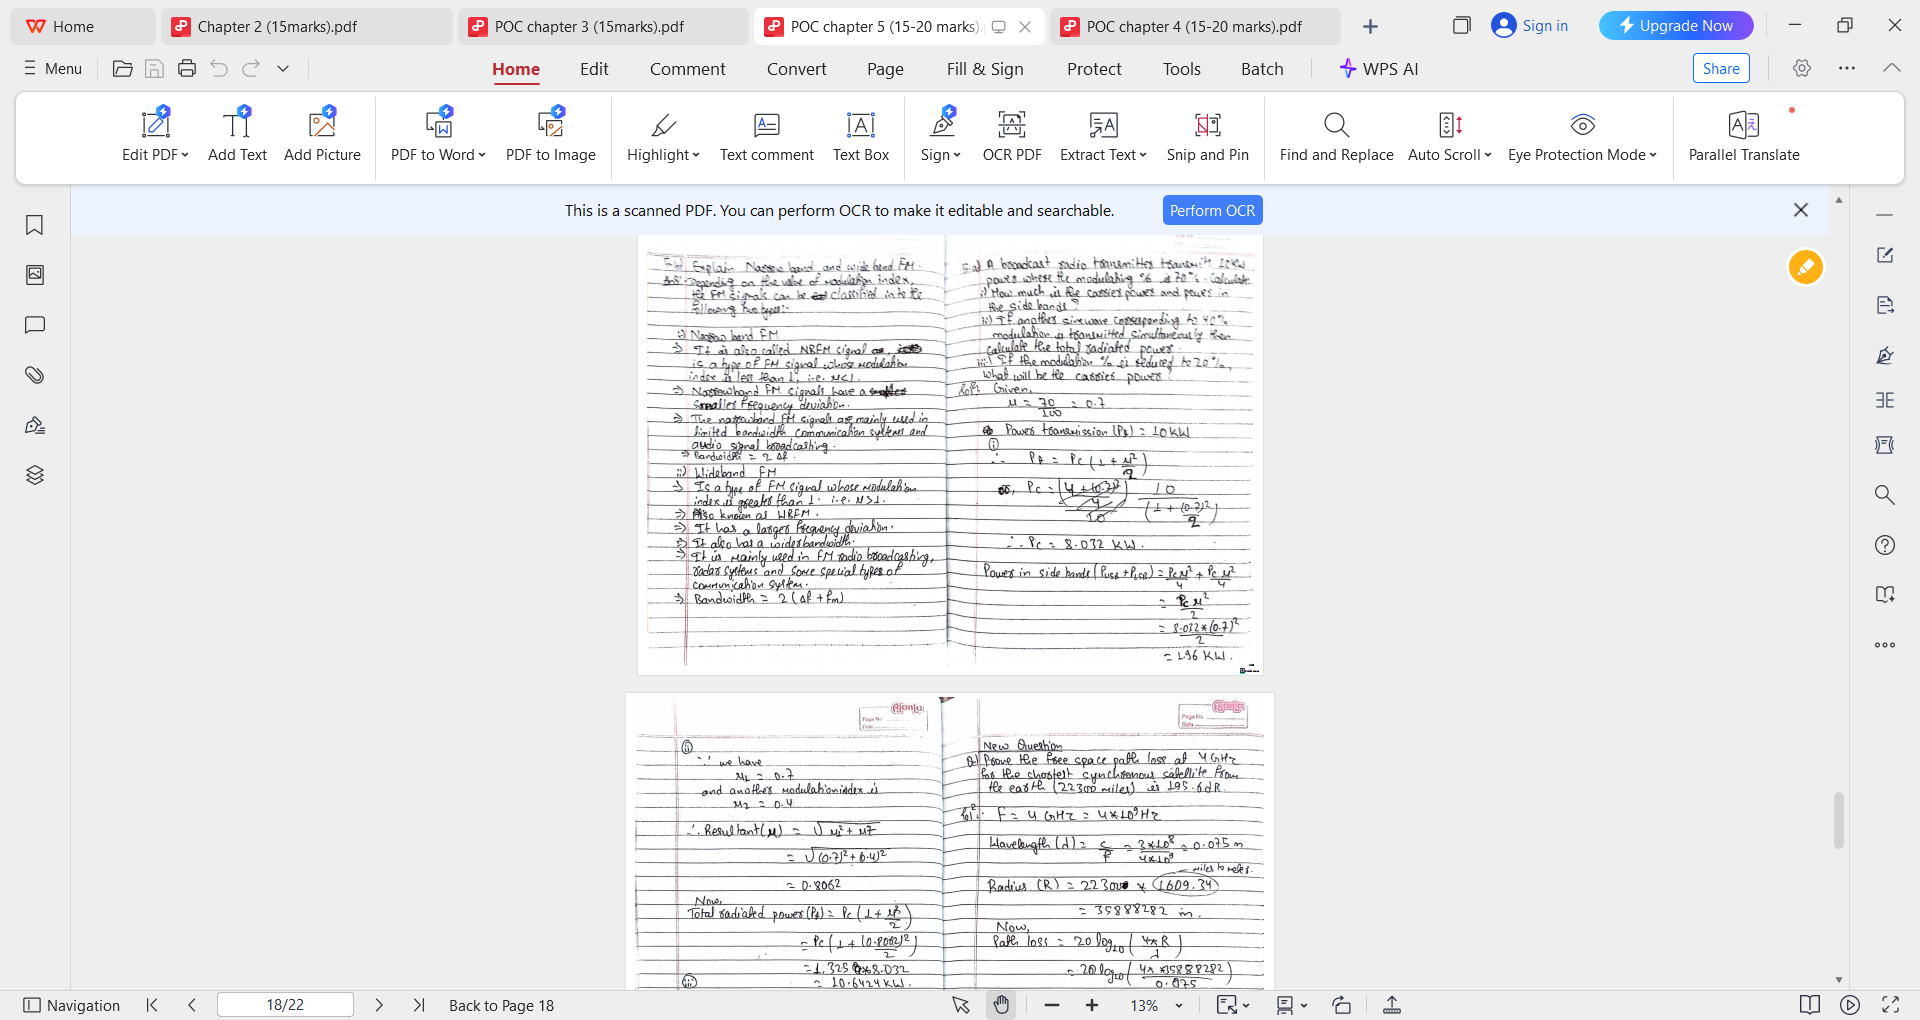 Home
Chapter 2 (15marks).pdf
POC chapter 3 (15marks).pdf
POC chapter 5 (15-20 marks).
POC chapter 4 (15-20 marks).pdf
Sign in
Upgrade Now
Menu
Home
Edit
Comment
Convert
Page
Fill & Sign
Protect
Tools
Batch
WPS AI
Share
Edit PDF
Add Text
Add Picture
PDF to Word
PDF to Image
Highlight
Text comment
Text Box
Sign
OCR PDF
Extract Text
Snip and Pin
Find and Replace
Auto Scroll
Eye Protection Mode
Parallel Translate
This is a scanned PDF. You can perform OCR to make it editable and searchable.
Perform OCR
Explain Narrow band and wide band FM.
Depending on the value of modulation index,
the FM signals can be classified into the
following two types:-
i) Narrow band FM
⇒ It is also called NBFM signal
is a type of FM signal whose modulation
index is less than 1. i.e. μ<1.
⇒ Narrowband FM signals have a
smaller frequency deviation.
⇒ The narrowband FM signals are mainly used in
limited bandwidth communication systems and
audio signal broadcasting.
⇒ Bandwidth = 2 Δf.
ii) Wideband FM
⇒ Is a type of FM signal whose modulation
index is greater than 1. i.e. μ>1.
⇒ Also known as WBFM.
⇒ It has a larger frequency deviation.
⇒ It also has a wider bandwidth.
⇒ It is mainly used in FM radio broadcasting,
radar systems and some special types of
communication system.
⇒ Bandwidth = 2 (Δf + fm)
5.a) A broadcast radio transmitter transmits 10KW
power where the modulating % is 70%. Calculate
i) How much is the carrier power and power in
the side bands?
ii) If another sinewave corresponding to 40%
modulation is transmitted simultaneously then
calculate the total radiated power.
iii) If the modulation % is reduced to 20%,
what will be the carrier power?
Given,
μ = 70/100 = 0.7
Power transmission (Pt) = 10 KW
i
∴ Pt = Pc (1 + μ²/2)
or, Pc = 10/(1 + (0.7)²/2)
∴ Pc = 8.032 KW.
Power in side bands (PUSB + PLSB) = Pcμ²/4 + Pcμ²/4
= Pcμ²/2
= 8.032*(0.7)²/2
= 1.96 KW.
Ajanta
Page No
Date
ii
∵ we have
μ1 = 0.7
and another modulation index is
μ2 = 0.4
∴ Resultant (μ) = √(μ1² + μ2²)
= √(0.7)² + (0.4)²
= 0.8062
Now,
Total radiated power (Pt) = Pc (1 + μ²/2)
= Pc (1 + (0.8062)²/2)
= 1.325 * 8.032
= 10.6424 KW.
iii
Ajanta
Page No
Date
New Question
Q.) Prove the free space path loss at 4 GHz
for the shortest synchronous satellite from
the earth (22300 miles) is 195.6 dB.
F = 4 GHz = 4*10⁹Hz
Wavelength (λ) = c/f = 3*10⁸/4*10⁹ = 0.075 m
miles to meter.
Radius (R) = 22300 * 1609.34
= 35888282 m.
Now,
Path loss = 20 log10 (4πR/λ)
= 20 log10 (4π*35888282/0.075)
Navigation
18/22
Back to Page 18
13%